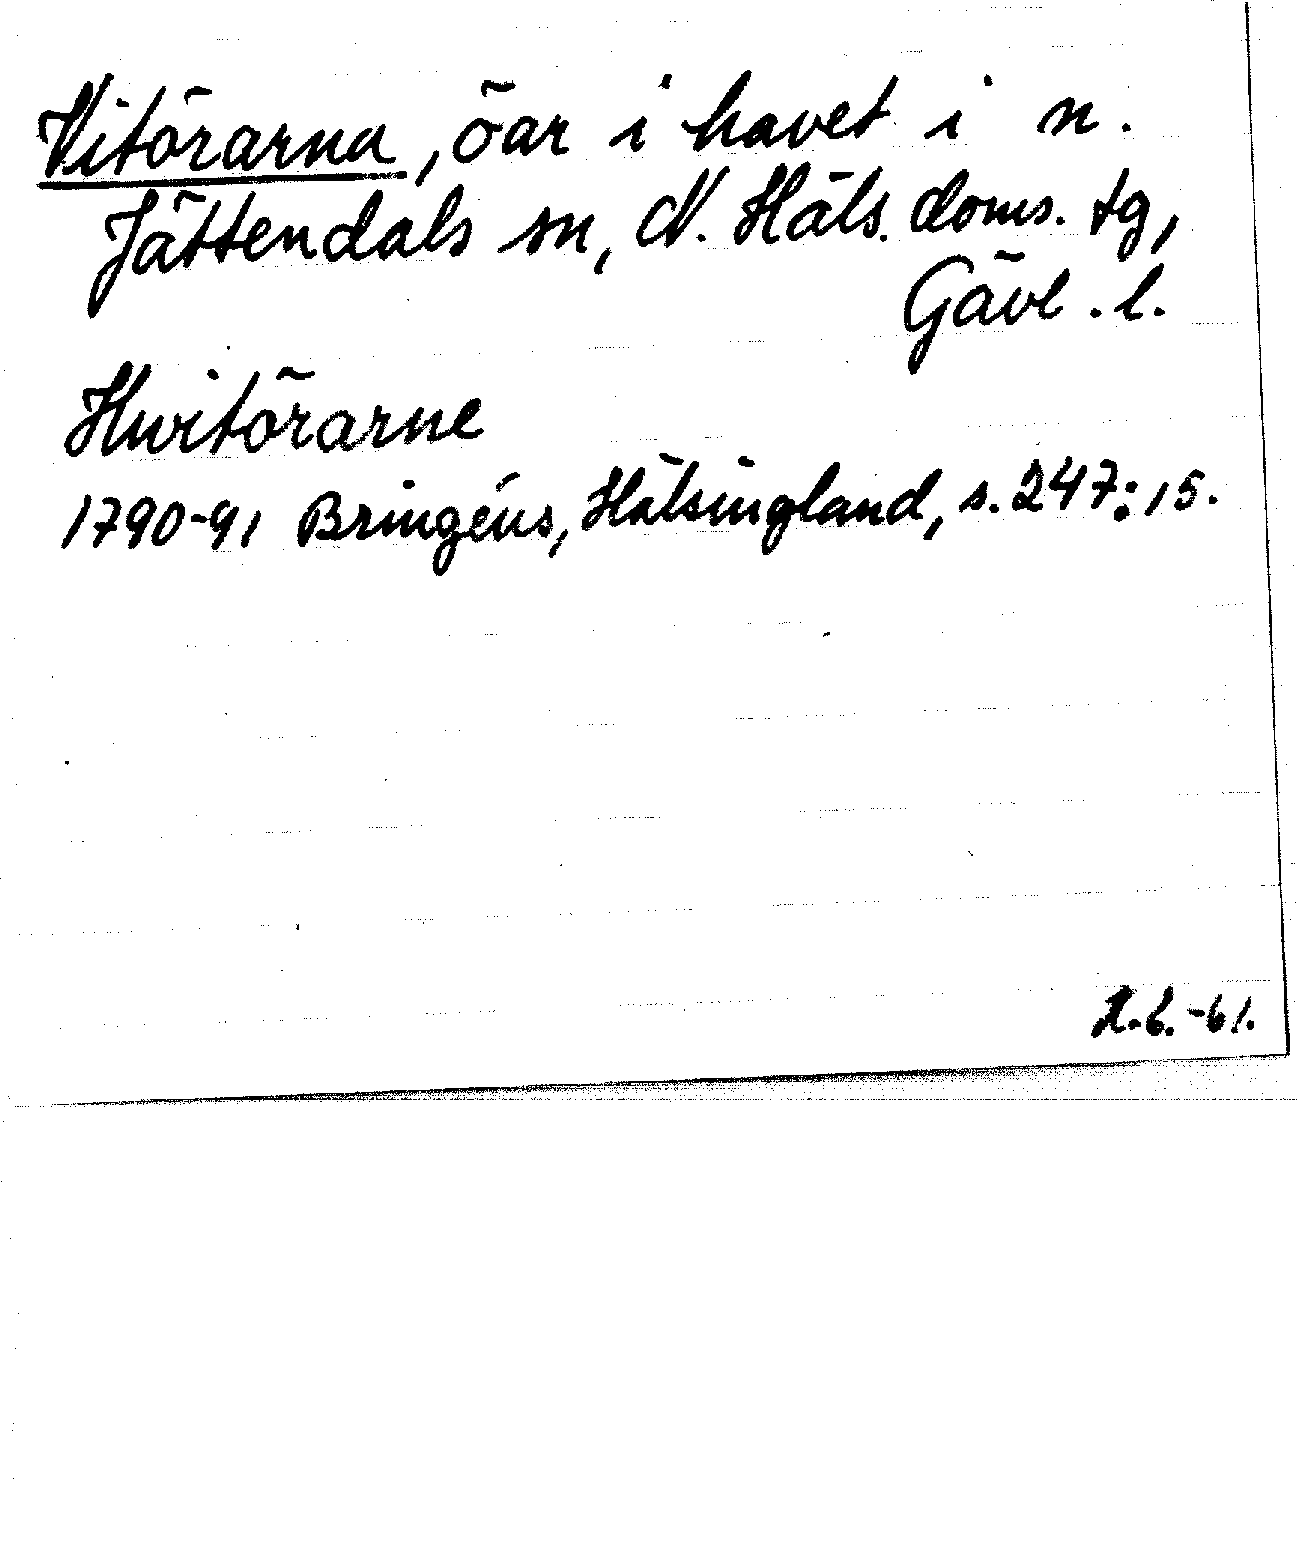 Vitörarna, öar i havet i n.
Jättendals sn, N. Häls. doms. tg,
Gävl. l.
Hwitörarne
1790-91 Bringéus, Hälsingland, s. 247:15.
-61.